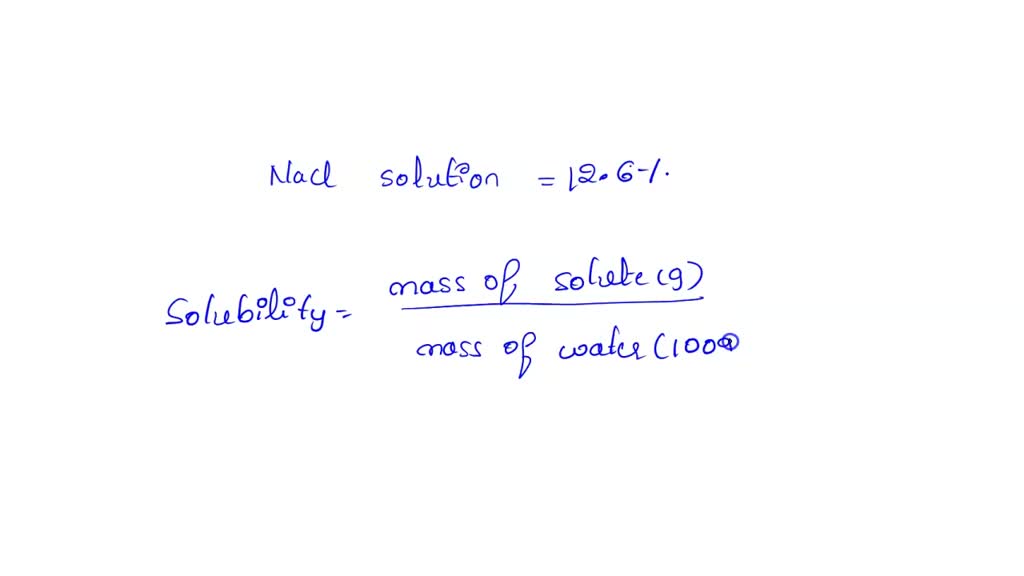 Nacl solution = 12.6%.
Solubility = mass of solute(g)
mass of water(100g